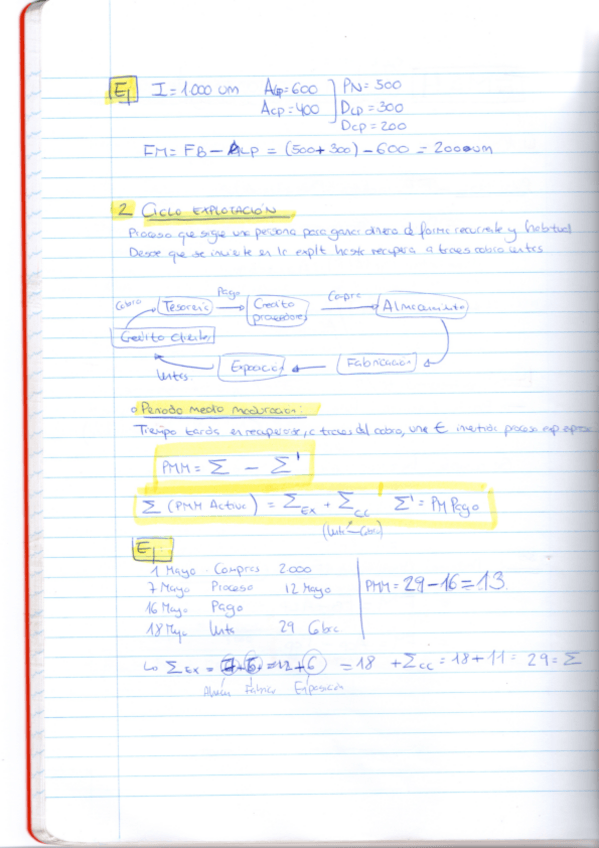 Ej I = 1000 um ALP = 600 PN = 500
ACP = 400 DLP = 300
DCP = 200
FM = FB - ALP = (500 + 300) - 600 = 200 um
2 CICLO EXPLOTACIÓN
Proceso que sigue una persona para ganar dinero de forma recurrente y habitual
Desde que se invierte en la explt hasta recupera a traves cobro ventas
Cobro Tesorería Pago Credito proveedores Compra Almacamiento
Credito clientes Ventas Exposición Fabricacion
o Periodo medio maduracion:
Tiempo tarda en recuperarse, a traves del cobro, una € invertida proceso exp
PMM = Σ - Σ'
Σ (PMM Activo) = ΣEX + ΣCC Σ' = PM Pago
Ej
1 Mayo Compras 2.000
7 Mayo Proceso 12 Mayo PMM = 29 - 16 = 13.
16 Mayo Pago
18 Mayo Vnts 29 Cobro
↳ ΣEX = 7 + 5 = 12 + 6 = 18 + ΣCC = 18 + 11 = 29 = Σ
Almcn Fabrica Exposicion